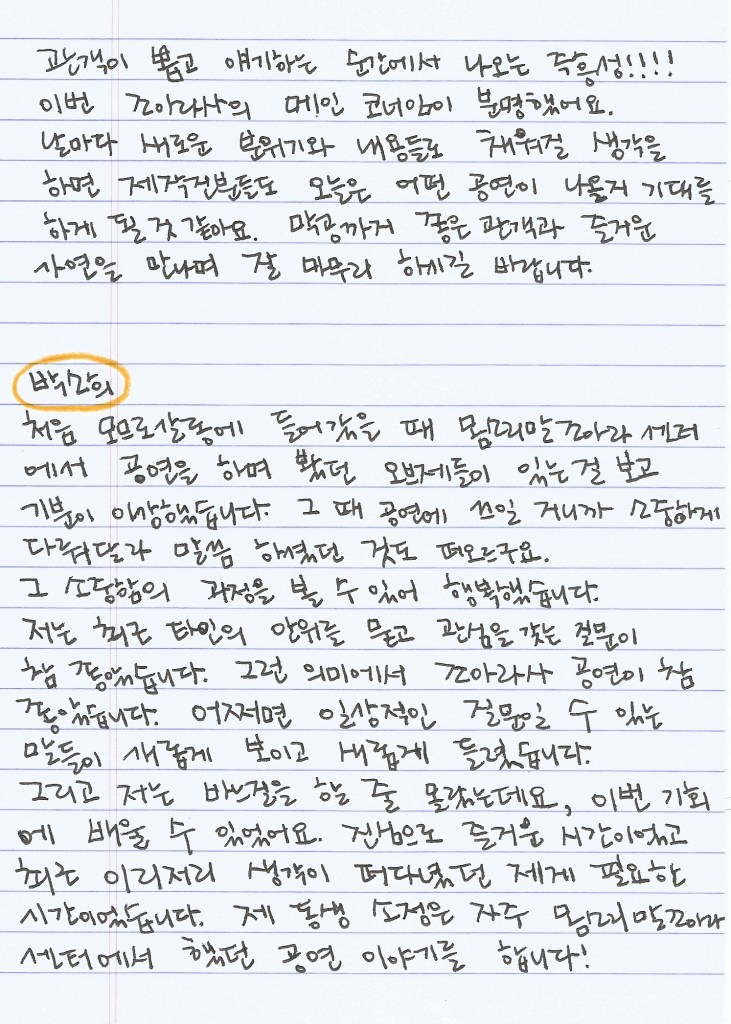 관객이 뽑고 얘기하는 순간에서 나오는 즉흥성!!!!
이번 꼬아라사의 메인 코너임이 분명했어요.
날마다 새로운 분위기와 내용들로 채워질 생각을
하면 제작진분들도 오늘은 어떤 공연이 나올지 기대를
하게 될 것 같아요. 막공까지 좋은 관객과 즐거운
사연을 만나며 잘 마무리 하시길 바랍니다.
박상희
처음 모므로살롱에 들어갔을 때 몸짓말꼬아라 센터
에서 공연을 하며 봤던 오브제들이 있는걸 보고
기분이 이상했습니다. 그 때 공연에 쓰일 거니까 소중하게
다뤄달라 말씀 하셨던 것도 떠오르구요.
그 소중함의 과정을 볼 수 있어 행복했습니다.
저는 최근 타인의 안위를 묻고 관심을 갖는 질문이
참 좋았습니다. 그런 의미에서 꼬아라사 공연이 참
좋았습니다. 어쩌면 일상적인 질문일 수 있는
말들이 새롭게 보이고 새롭게 들렸습니다.
그리고 저는 바느질을 할 줄 몰랐는데요, 이번 기회
에 배울 수 있었어요. 진심으로 즐거운 시간이었고
최근 이리저리 생각이 떠다녔던 제게 필요한
시간이었습니다. 제 동생 소정은 자주 몸짓말꼬아라
센터에서 했던 공연 이야기를 합니다!